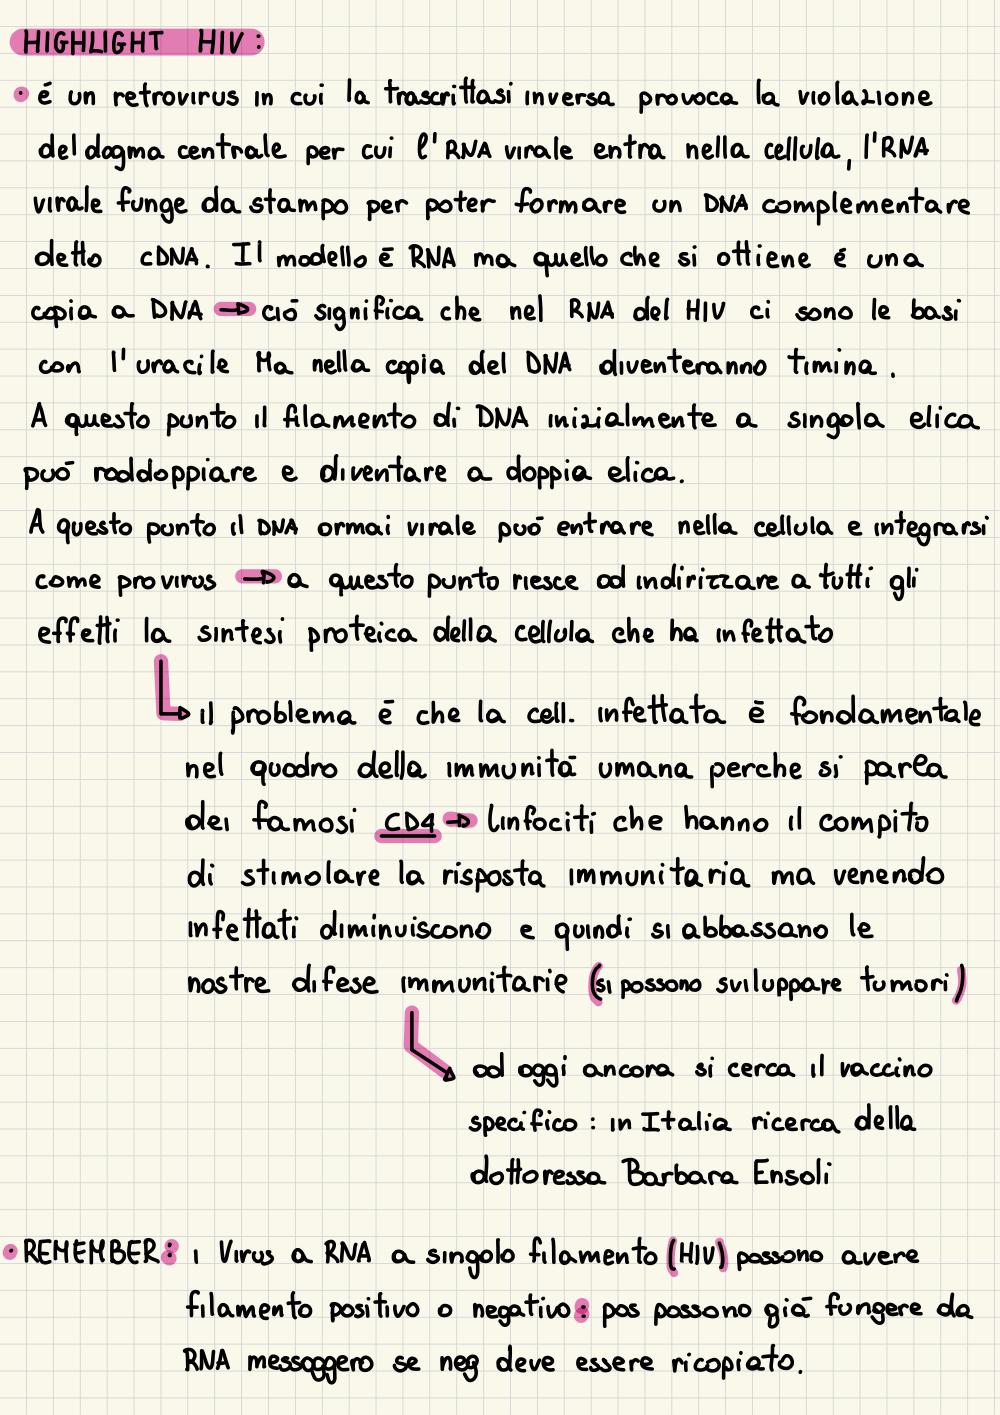 HIGHLIGHT HIV:
• é un retrovirus in cui la trascrittasi inversa provoca la violazione
del dogma centrale per cui l'RNA virale entra nella cellula, l'RNA
virale funge da stampo per poter formare un DNA complementare
detto cDNA. Il modello è RNA ma quello che si ottiene é una
copia a DNA → ciò significa che nel RNA del HIV ci sono le basi
con l'uracile Ma nella copia del DNA diventeranno timina.
A questo punto il filamento di DNA inizialmente a singola elica
può raddoppiare e diventare a doppia elica.
A questo punto il DNA ormai virale può entrare nella cellula e integrarsi
come provirus → a questo punto riesce ad indirizzare a tutti gli
effetti la sintesi proteica della cellula che ha infettato
↳ il problema è che la cell. infettata è fondamentale
nel quadro della immunità umana perche si parla
dei famosi CD4 → linfociti che hanno il compito
di stimolare la risposta immunitaria ma venendo
infettati diminuiscono e quindi si abbassano le
nostre difese immunitarie (si possono sviluppare tumori)
↳ ad oggi ancora si cerca il vaccino
specifico: in Italia ricerca della
dottoressa Barbara Ensoli
• REMEMBER: i Virus a RNA a singolo filamento (HIV) possono avere
filamento positivo o negativo: pos possono già fungere da
RNA messaggero se neg deve essere ricopiato.